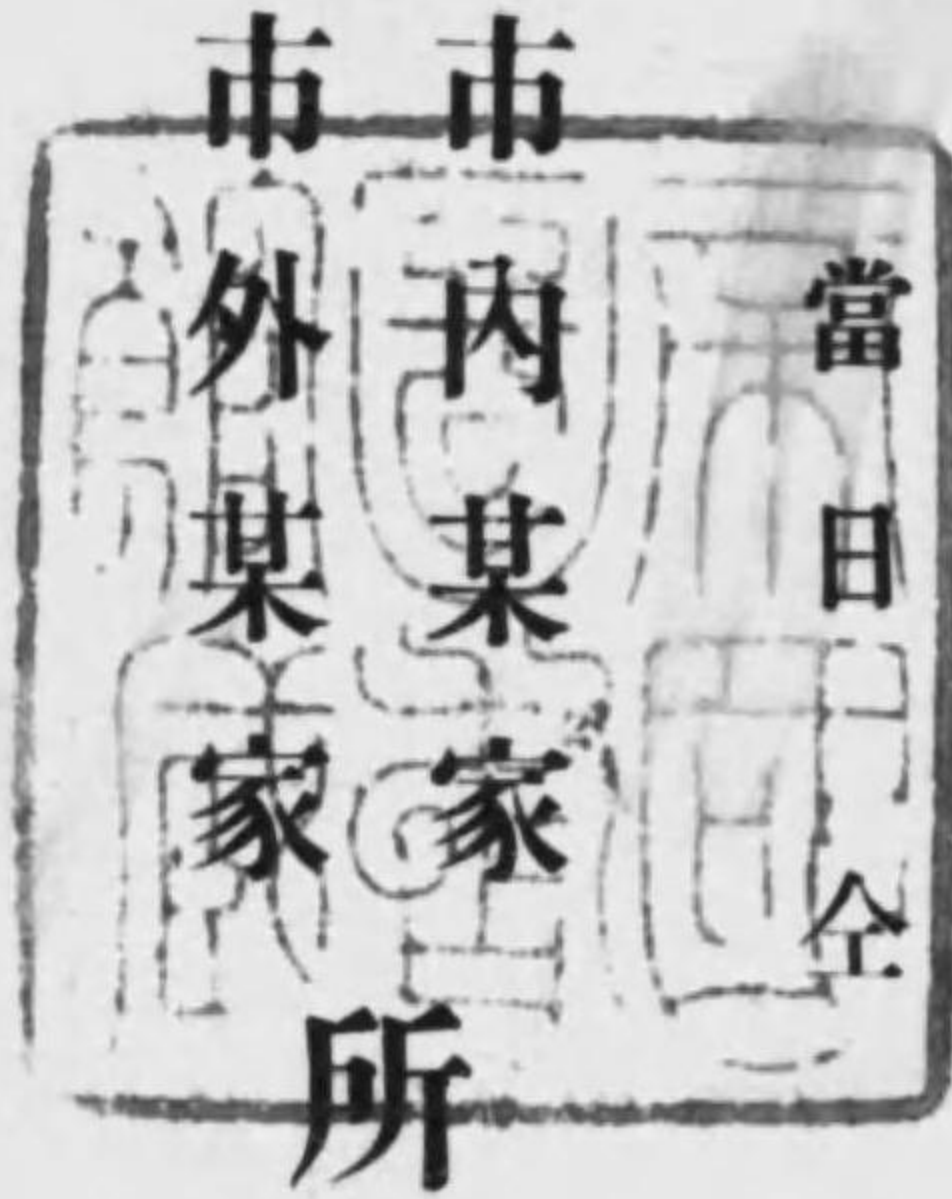 當日仝
市內某家
市外某家
所